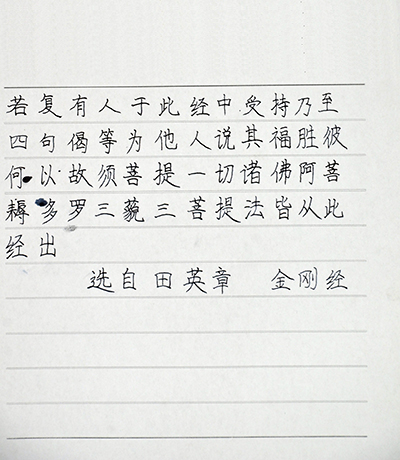 若复有人于此经中受持乃至
四句偈等为他人说其福胜彼
何以故须菩提一切诸佛阿菩
耨多罗三藐三菩提法皆从此
经出
选自田英章 金刚经